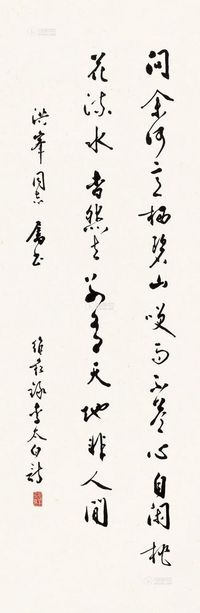 问余何意栖碧山笑而不答心自闲桃
花流水杳然去别有天地非人间
洪峰同志属书
维菘咏李太白诗